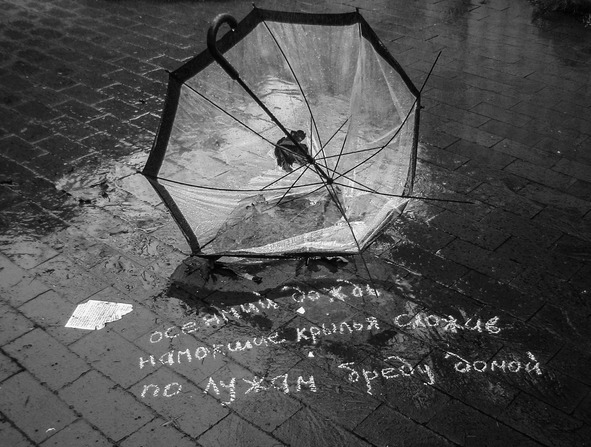 осенний дождь
намокшие крылья сложив
по лужам бреду домой